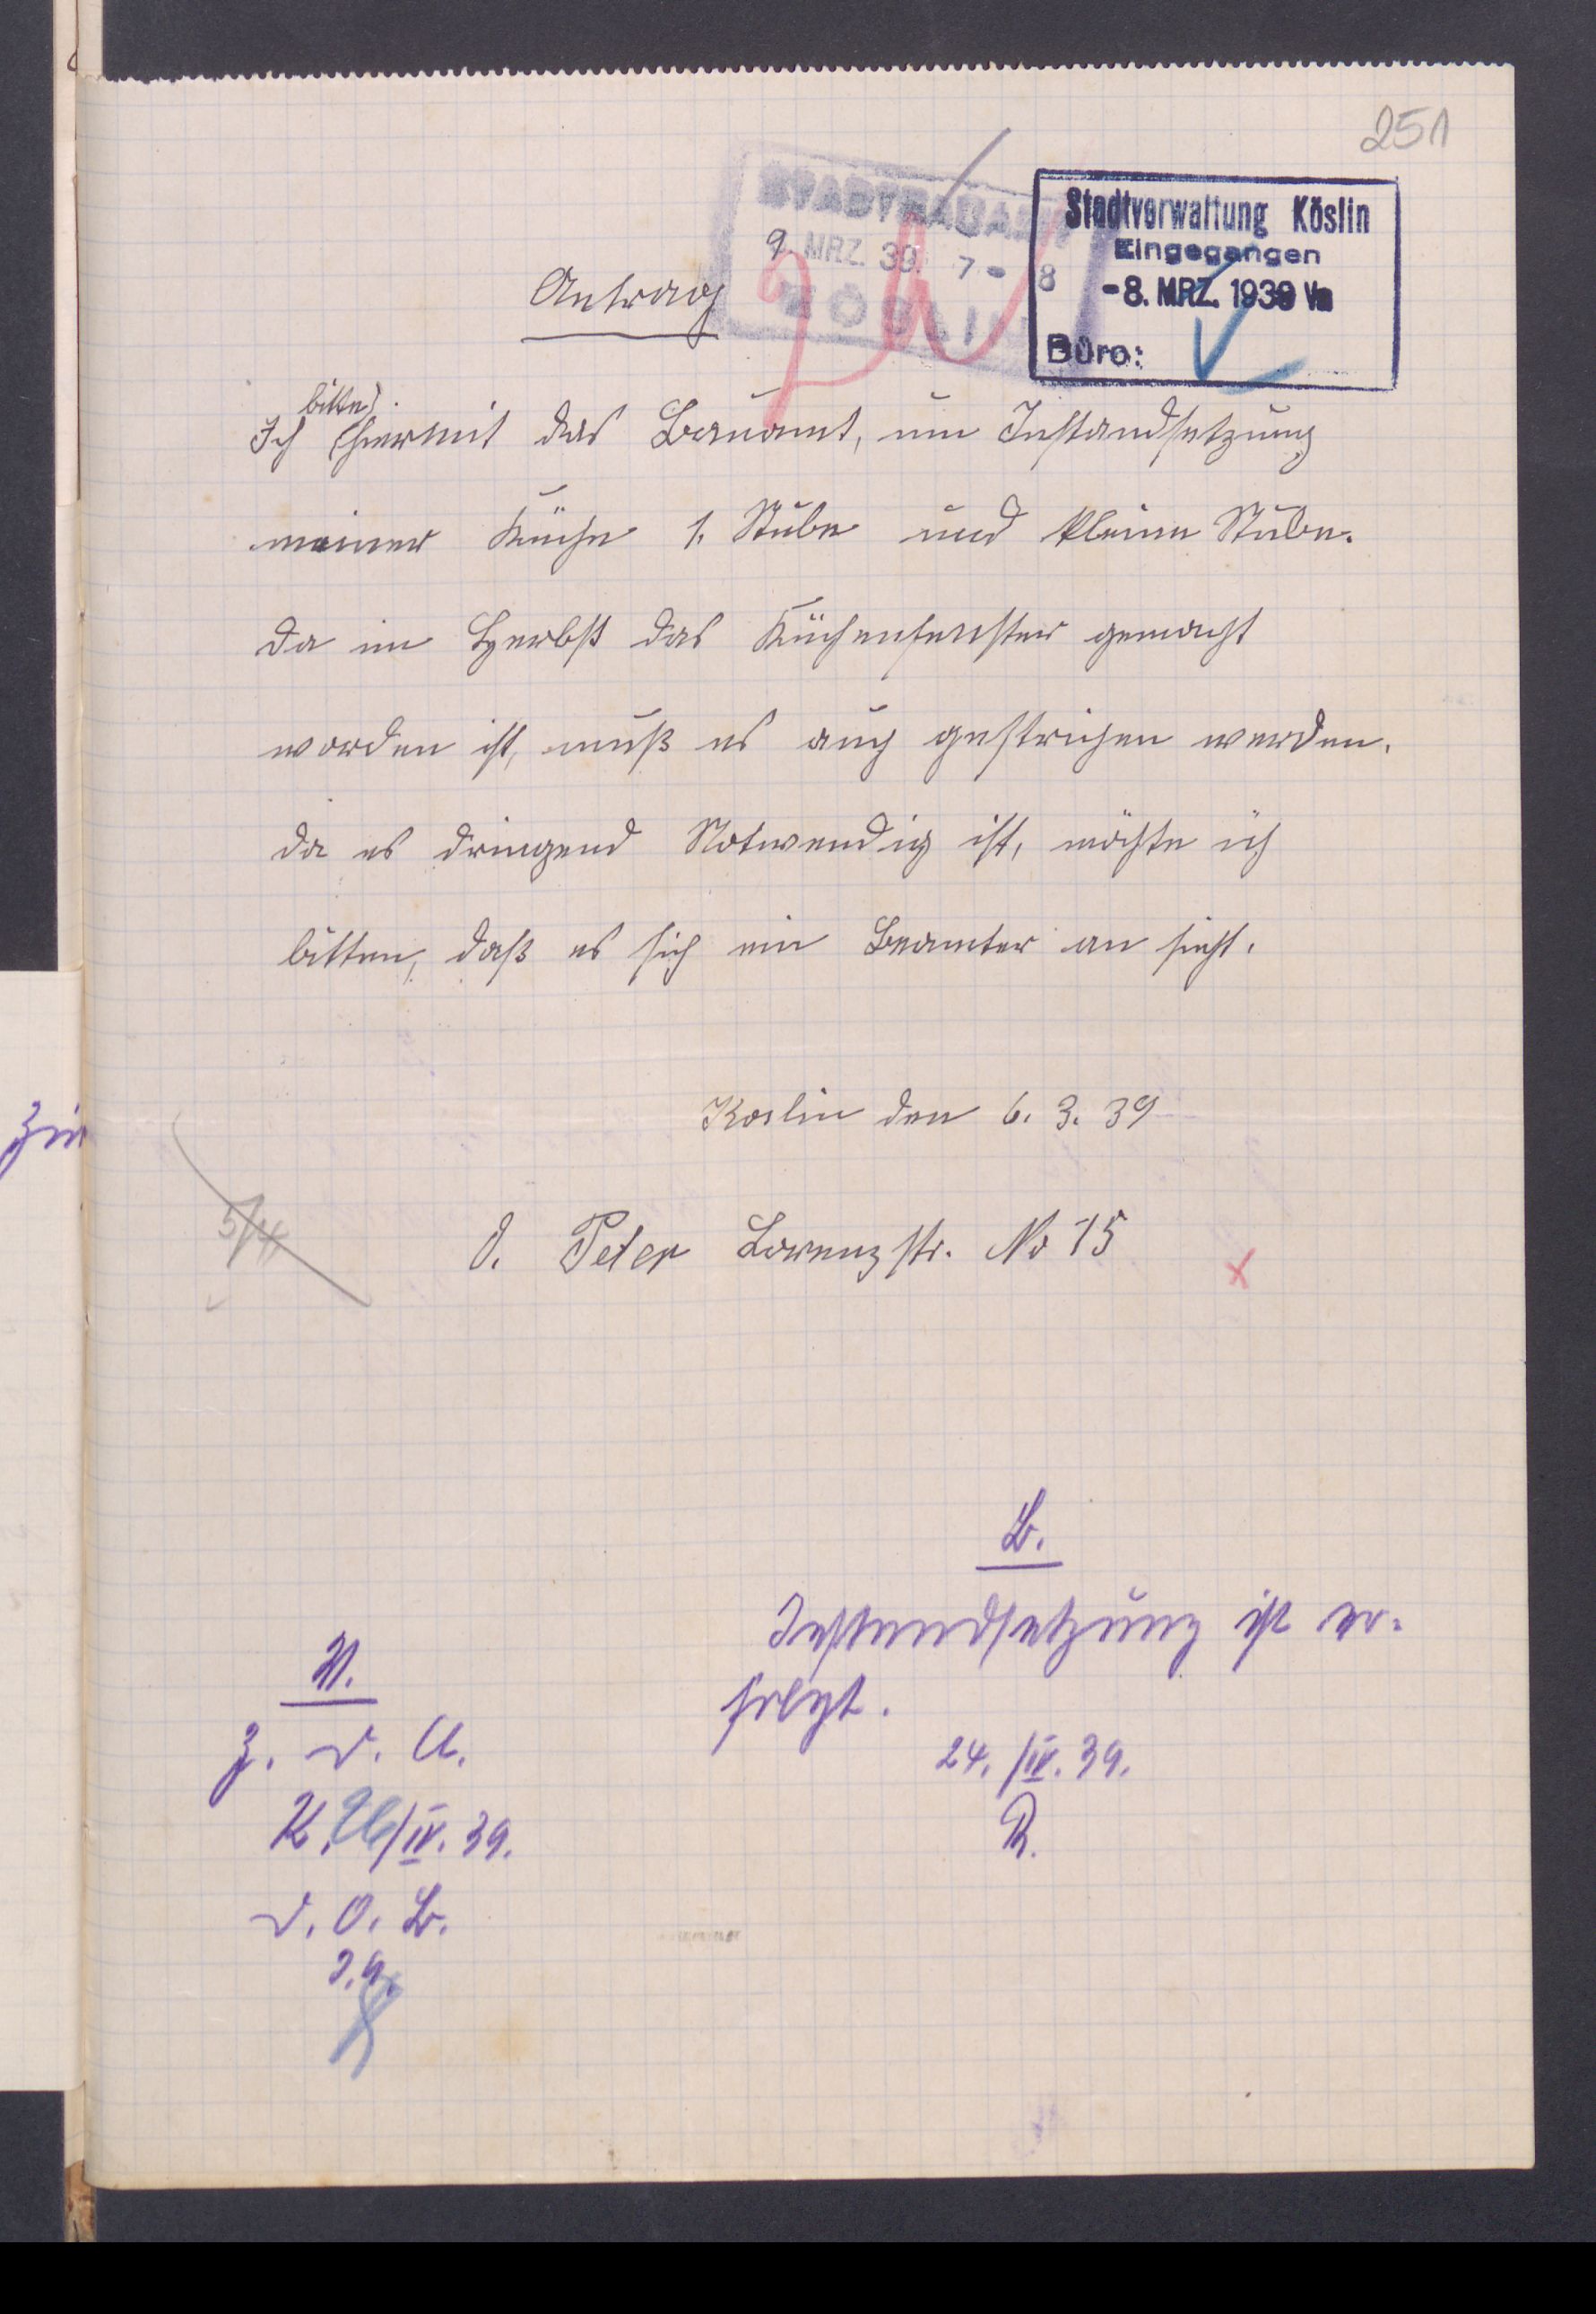 251
STADTBAUAMT
9. MRZ. 39. 7-8
KÖSLIN
Stadtverwaltung Köslin
Eingegangen
-8. MRZ. 1939 Vm
Büro:
Antrag
bitte
Ich hiermit das Bauamt, um Instandsetzung
meiner Küche 1. Stube und kleine Stube.
da im Herbst das Küchenfenster gemacht
worden ist, muß es auch gestrichen werden.
da es dringend Notwendig ist, möchte ich
bitten, daß es sich ein Beamter an sieht.
Koslin den 6. 3. 39
O. Peter Lorenzstr. No 15
B.
Instandsetzung ist er-
folgt.
24./IV. 39.
R.
V.
z. d. A.
K. 26/IV. 39.
D. O. B.
J. A.